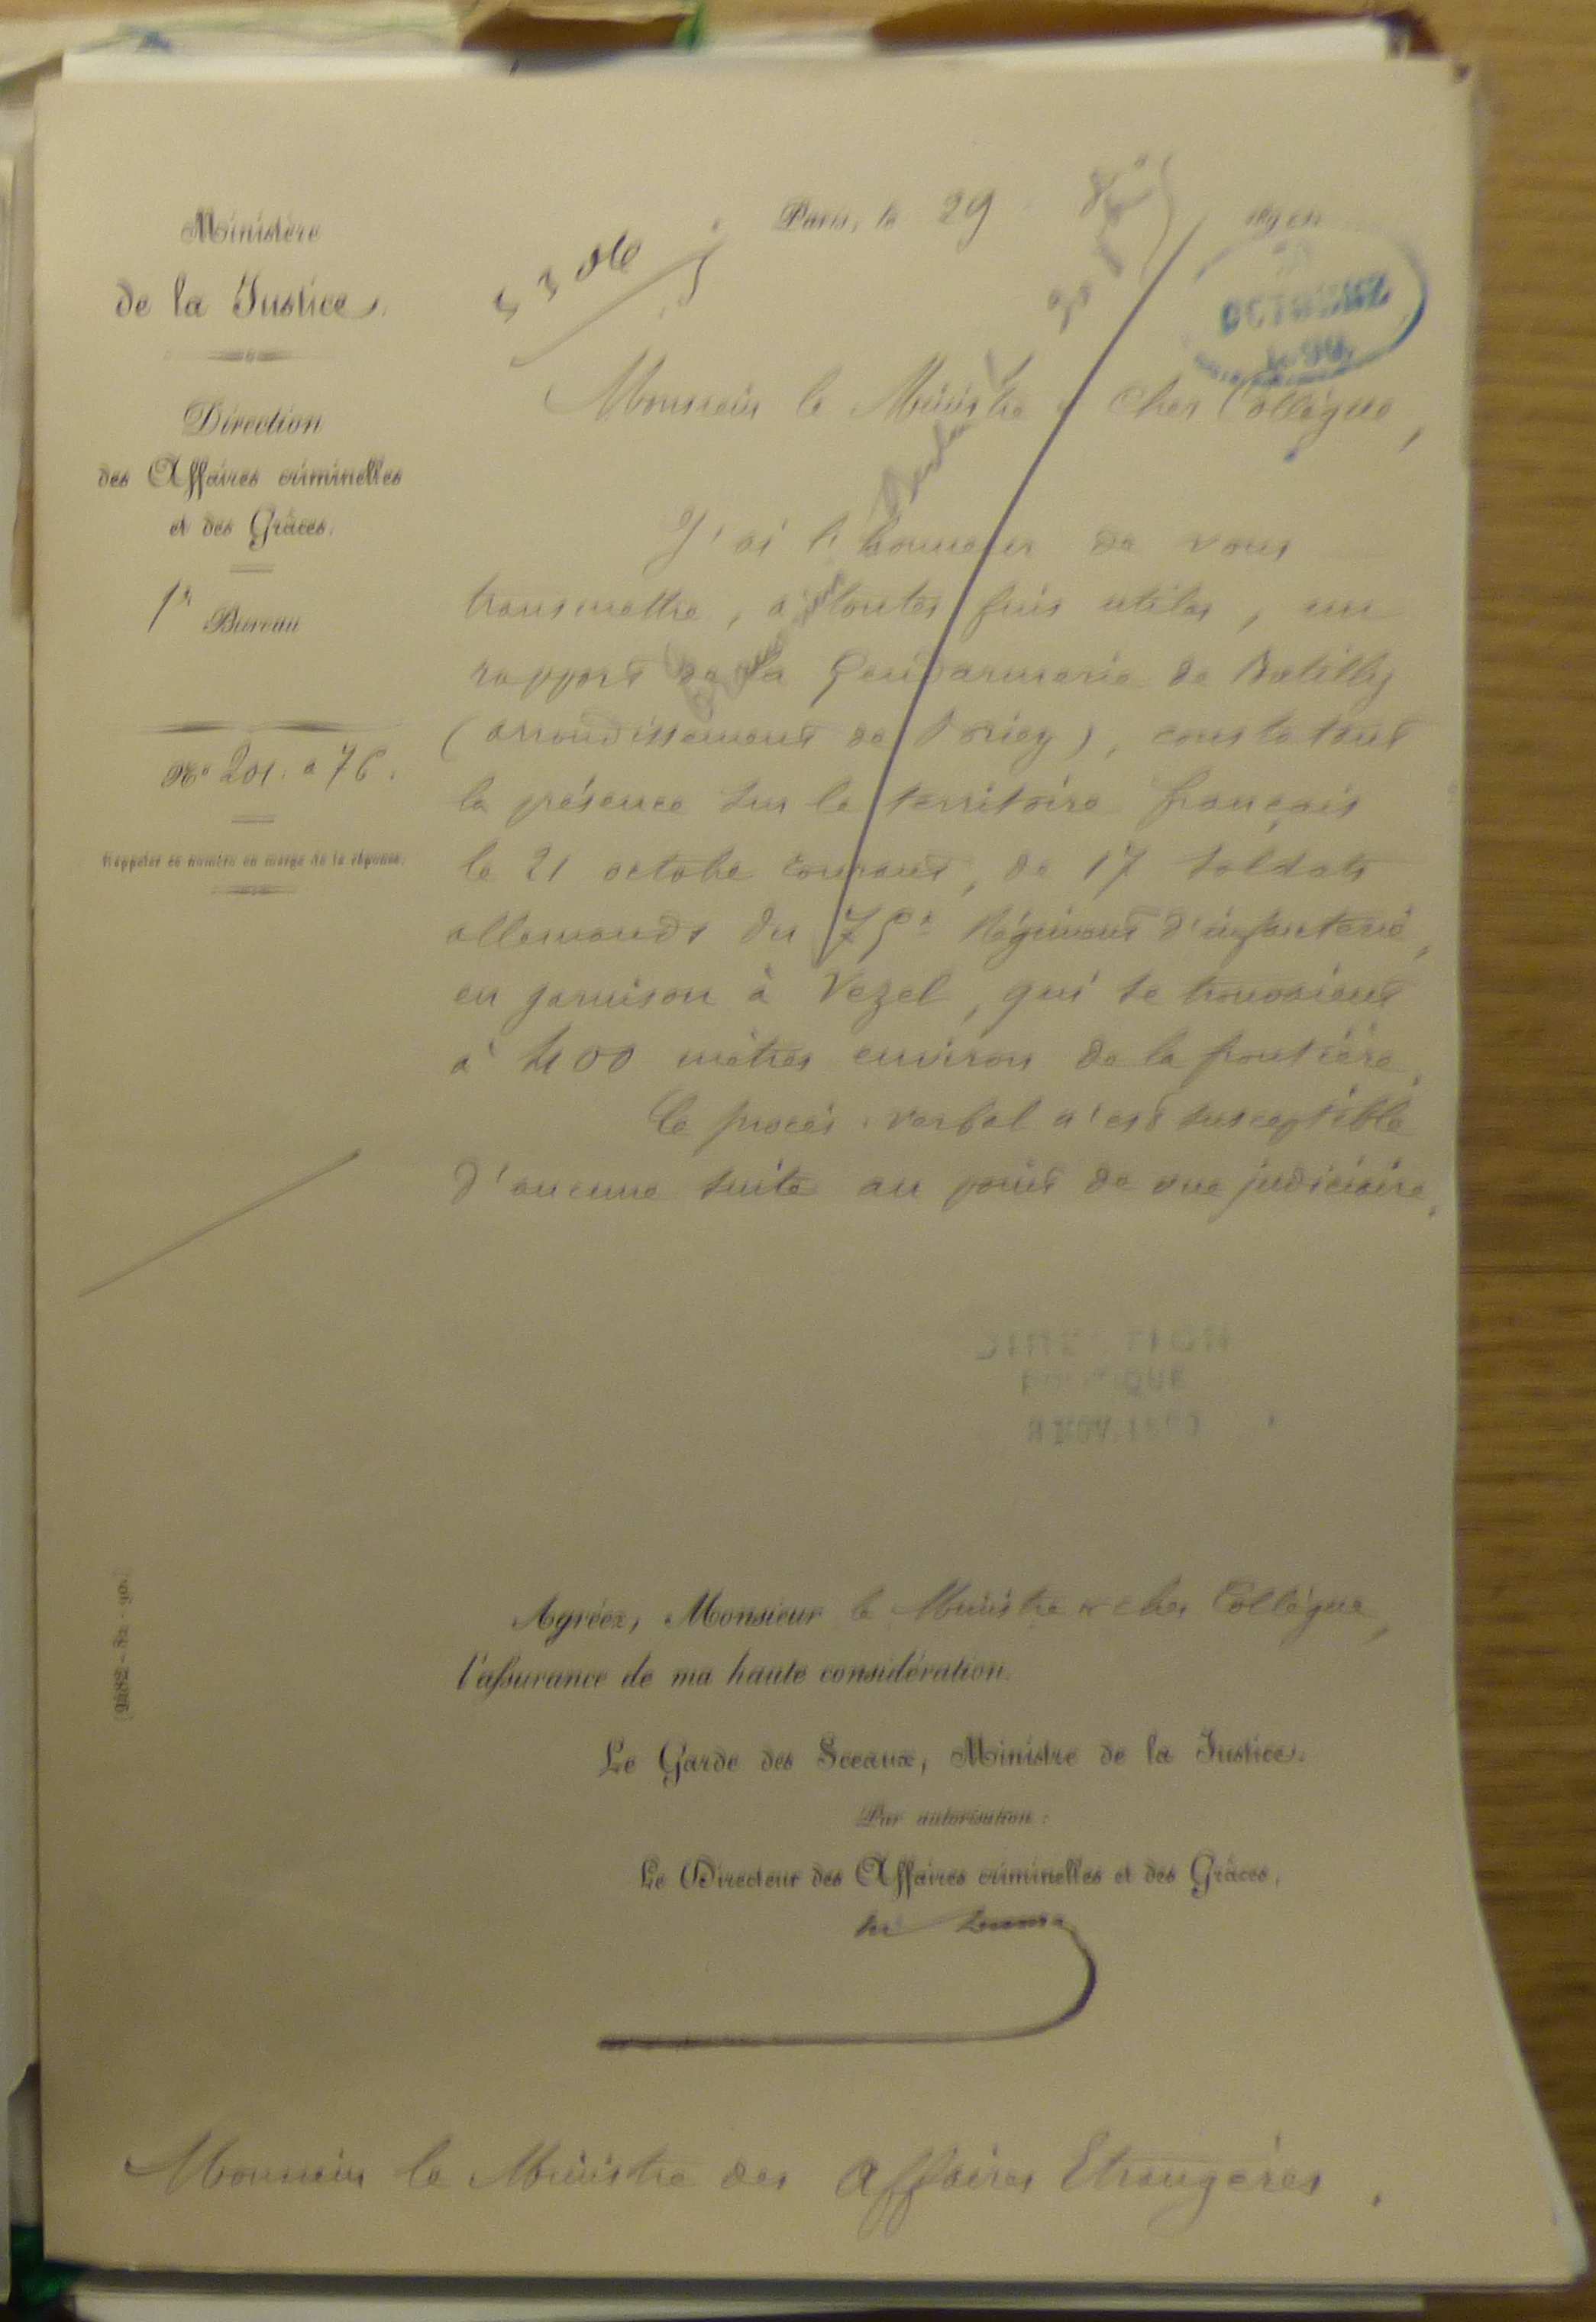 Ministère
de la Justice.
Direction
des Affaires criminelles
et des Grâces.
1er Bureau
No 201. a 76.
Rappeler ce numéro en marge de la réponse.
Paris, le 29
OCTOBRE
Monsieur le Ministre et cher Collègue,
J'ai l'honneur de vous
transmettre, à toutes fins utiles, un
rapport de la Gendarmerie de Batilly
(arrondissement de Briey), constatant
la présence sur le territoire français
le 21 octobre courant, de 17 soldats
allemands du Régiment d'infanterie,
en garnison à Vezel, qui se trouvaient
à 400 mètres environ de la frontière.
Ce procès-verbal n'est susceptible
d'aucune suite au point de vue judiciaire.
DIRECTION
POLITIQUE
Agréez, Monsieur le Ministre et cher Collègue,
l'assurance de ma haute considération.
Le Garde des Sceaux, Ministre de la Justice.
Par autorisation:
Le Directeur des Affaires criminelles et des Grâces,
Monsieur le Ministre des Affaires Etrangères.